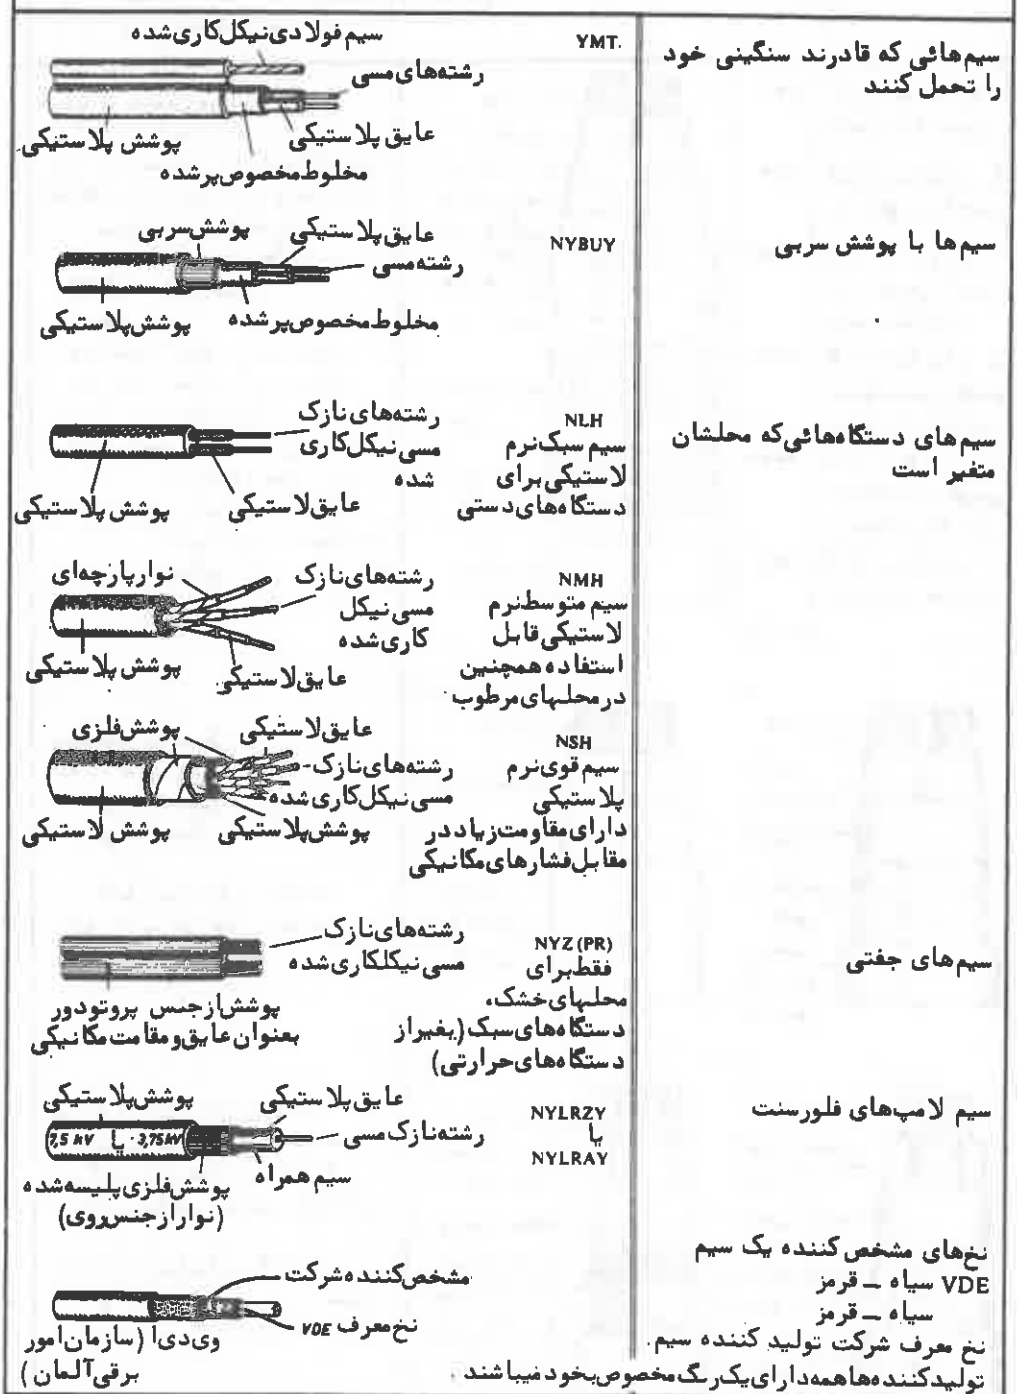 سیم‌هائی که قادرند سنگینی خود
را تحمل کنند
YMT.
سیم فولادی نیکل‌کاری شده
رشته‌های مسی
عایق پلاستیکی
پوشش پلاستیکی
مخلوط مخصوص پر شده
سیم‌ها با پوشش سربی
NYBUY
پوشش سربی
عایق پلاستیکی
رشته مسی
مخلوط مخصوص پر شده
پوشش پلاستیکی
سیم‌های دستگاه‌هائی که محلشان
متغیر است
NLH
سیم سبک نرم
لاستیکی برای
دستگاه‌های دستی
رشته‌های نازک
مسی نیکل کاری
شده
عایق لاستیکی
پوشش پلاستیکی
NMH
سیم متوسط نرم
لاستیکی قابل
استفاده همچنین
در محلهای مرطوب
نوار پارچه‌ای
رشته‌های نازک
مسی نیکل
کاری شده
عایق لاستیکی
پوشش پلاستیکی
NSH
سیم قوی نرم
پلاستیکی
دارای مقاومت زیاد در
مقابل فشارهای مکانیکی
پوشش فلزی
عایق لاستیکی
رشته‌های نازک
مسی نیکل کاری شده
پوشش پلاستیکی
پوشش لاستیکی
سیم‌های جفتی
NYZ (PR)
فقط برای
محلهای خشک،
دستگاه‌های سبک (بغیر از
دستگاه‌های حرارتی)
رشته‌های نازک
مسی نیکلکاری شده
پوشش از جنس پروتودور
بعنوان عایق و مقامت مکانیکی
سیم لامپ‌های فلورسنت
NYLRZY
یا
NYLRAY
پوشش پلاستیکی
عایق پلاستیکی
رشته نازک مسی
7,5 kV یا 3,75 kV
سیم همراه
پوشش فلزی پلیسه شده
(نوار از جنس روی)
نخ‌های مشخص کننده یک سیم
VDE سیاه – قرمز
سیاه – قرمز
نخ معرف شرکت تولید کننده سیم.
تولید کننده ها همه دارای یک رنگ مخصوص بخود میباشند.
مشخص کننده شرکت
نخ معرف VDE
وی دی ا (سازمان امور
برقی آلمان)